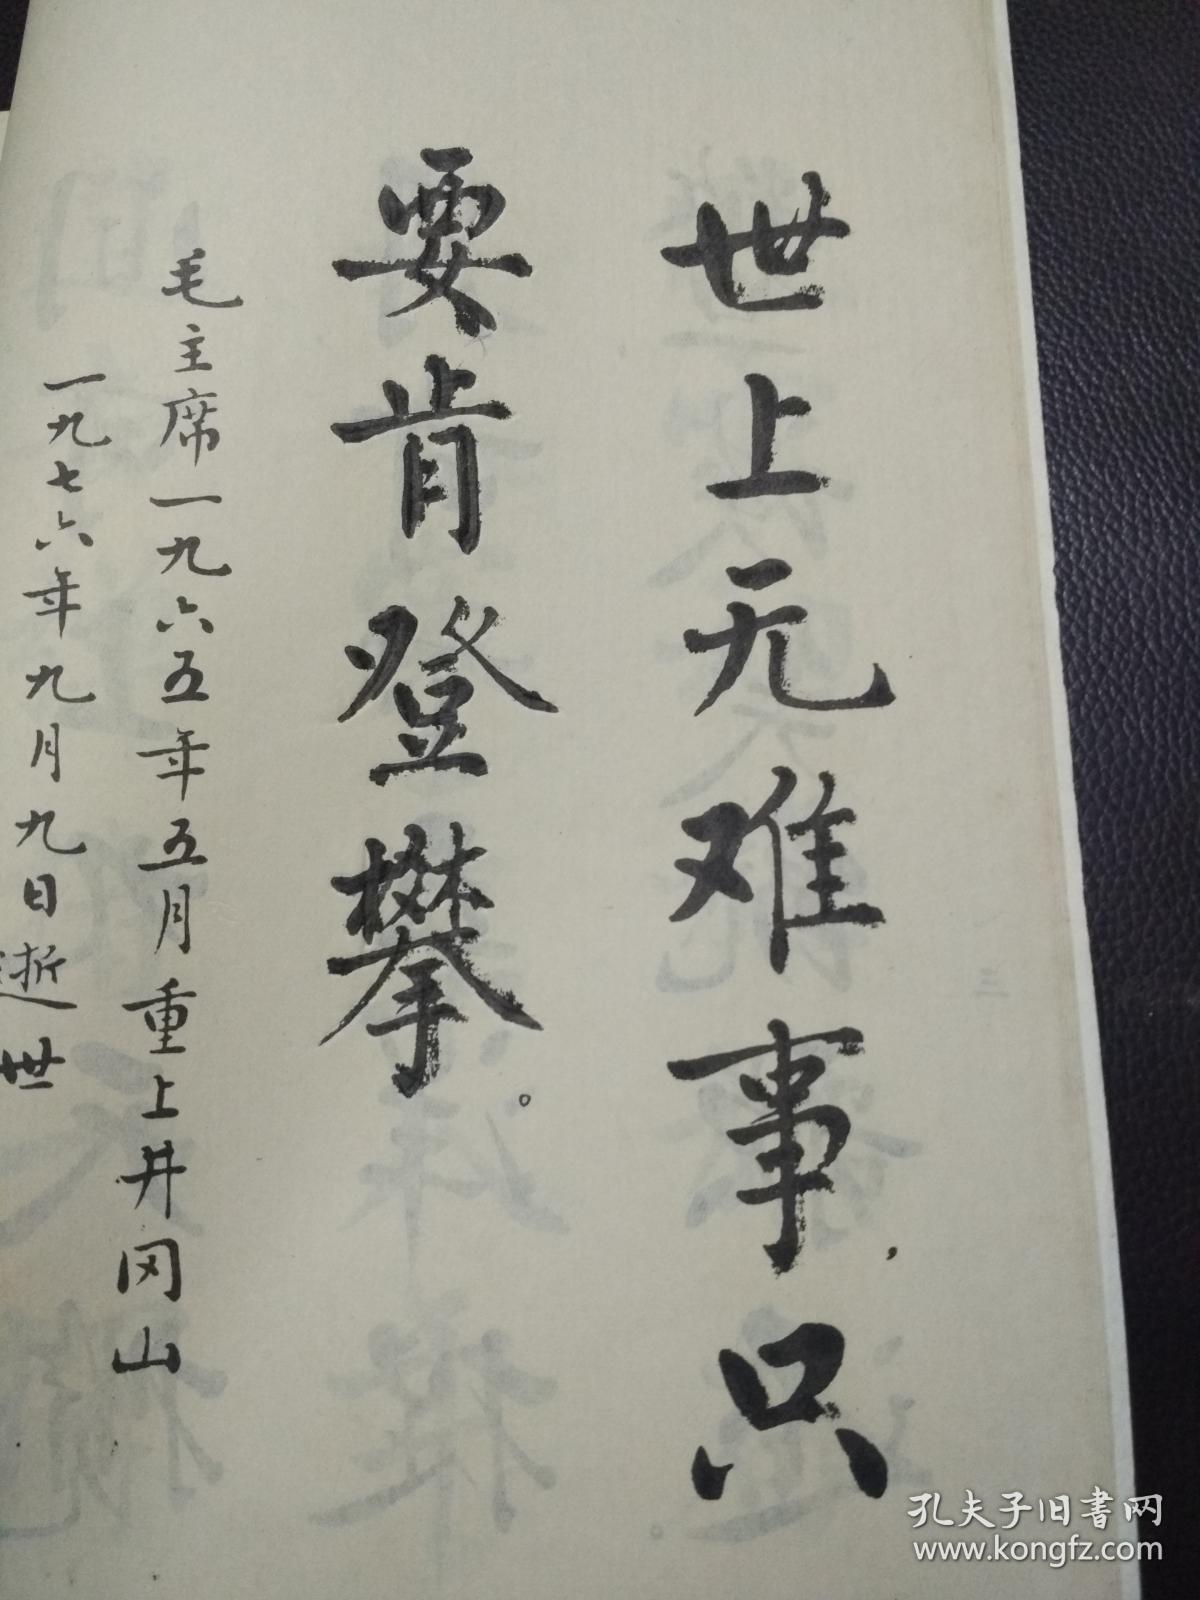 世上无难事，只
要肯登攀。
毛主席一九六五年五月重上井冈山
一九七六年九月九日逝世
孔夫子旧书网
www.kongfz.com